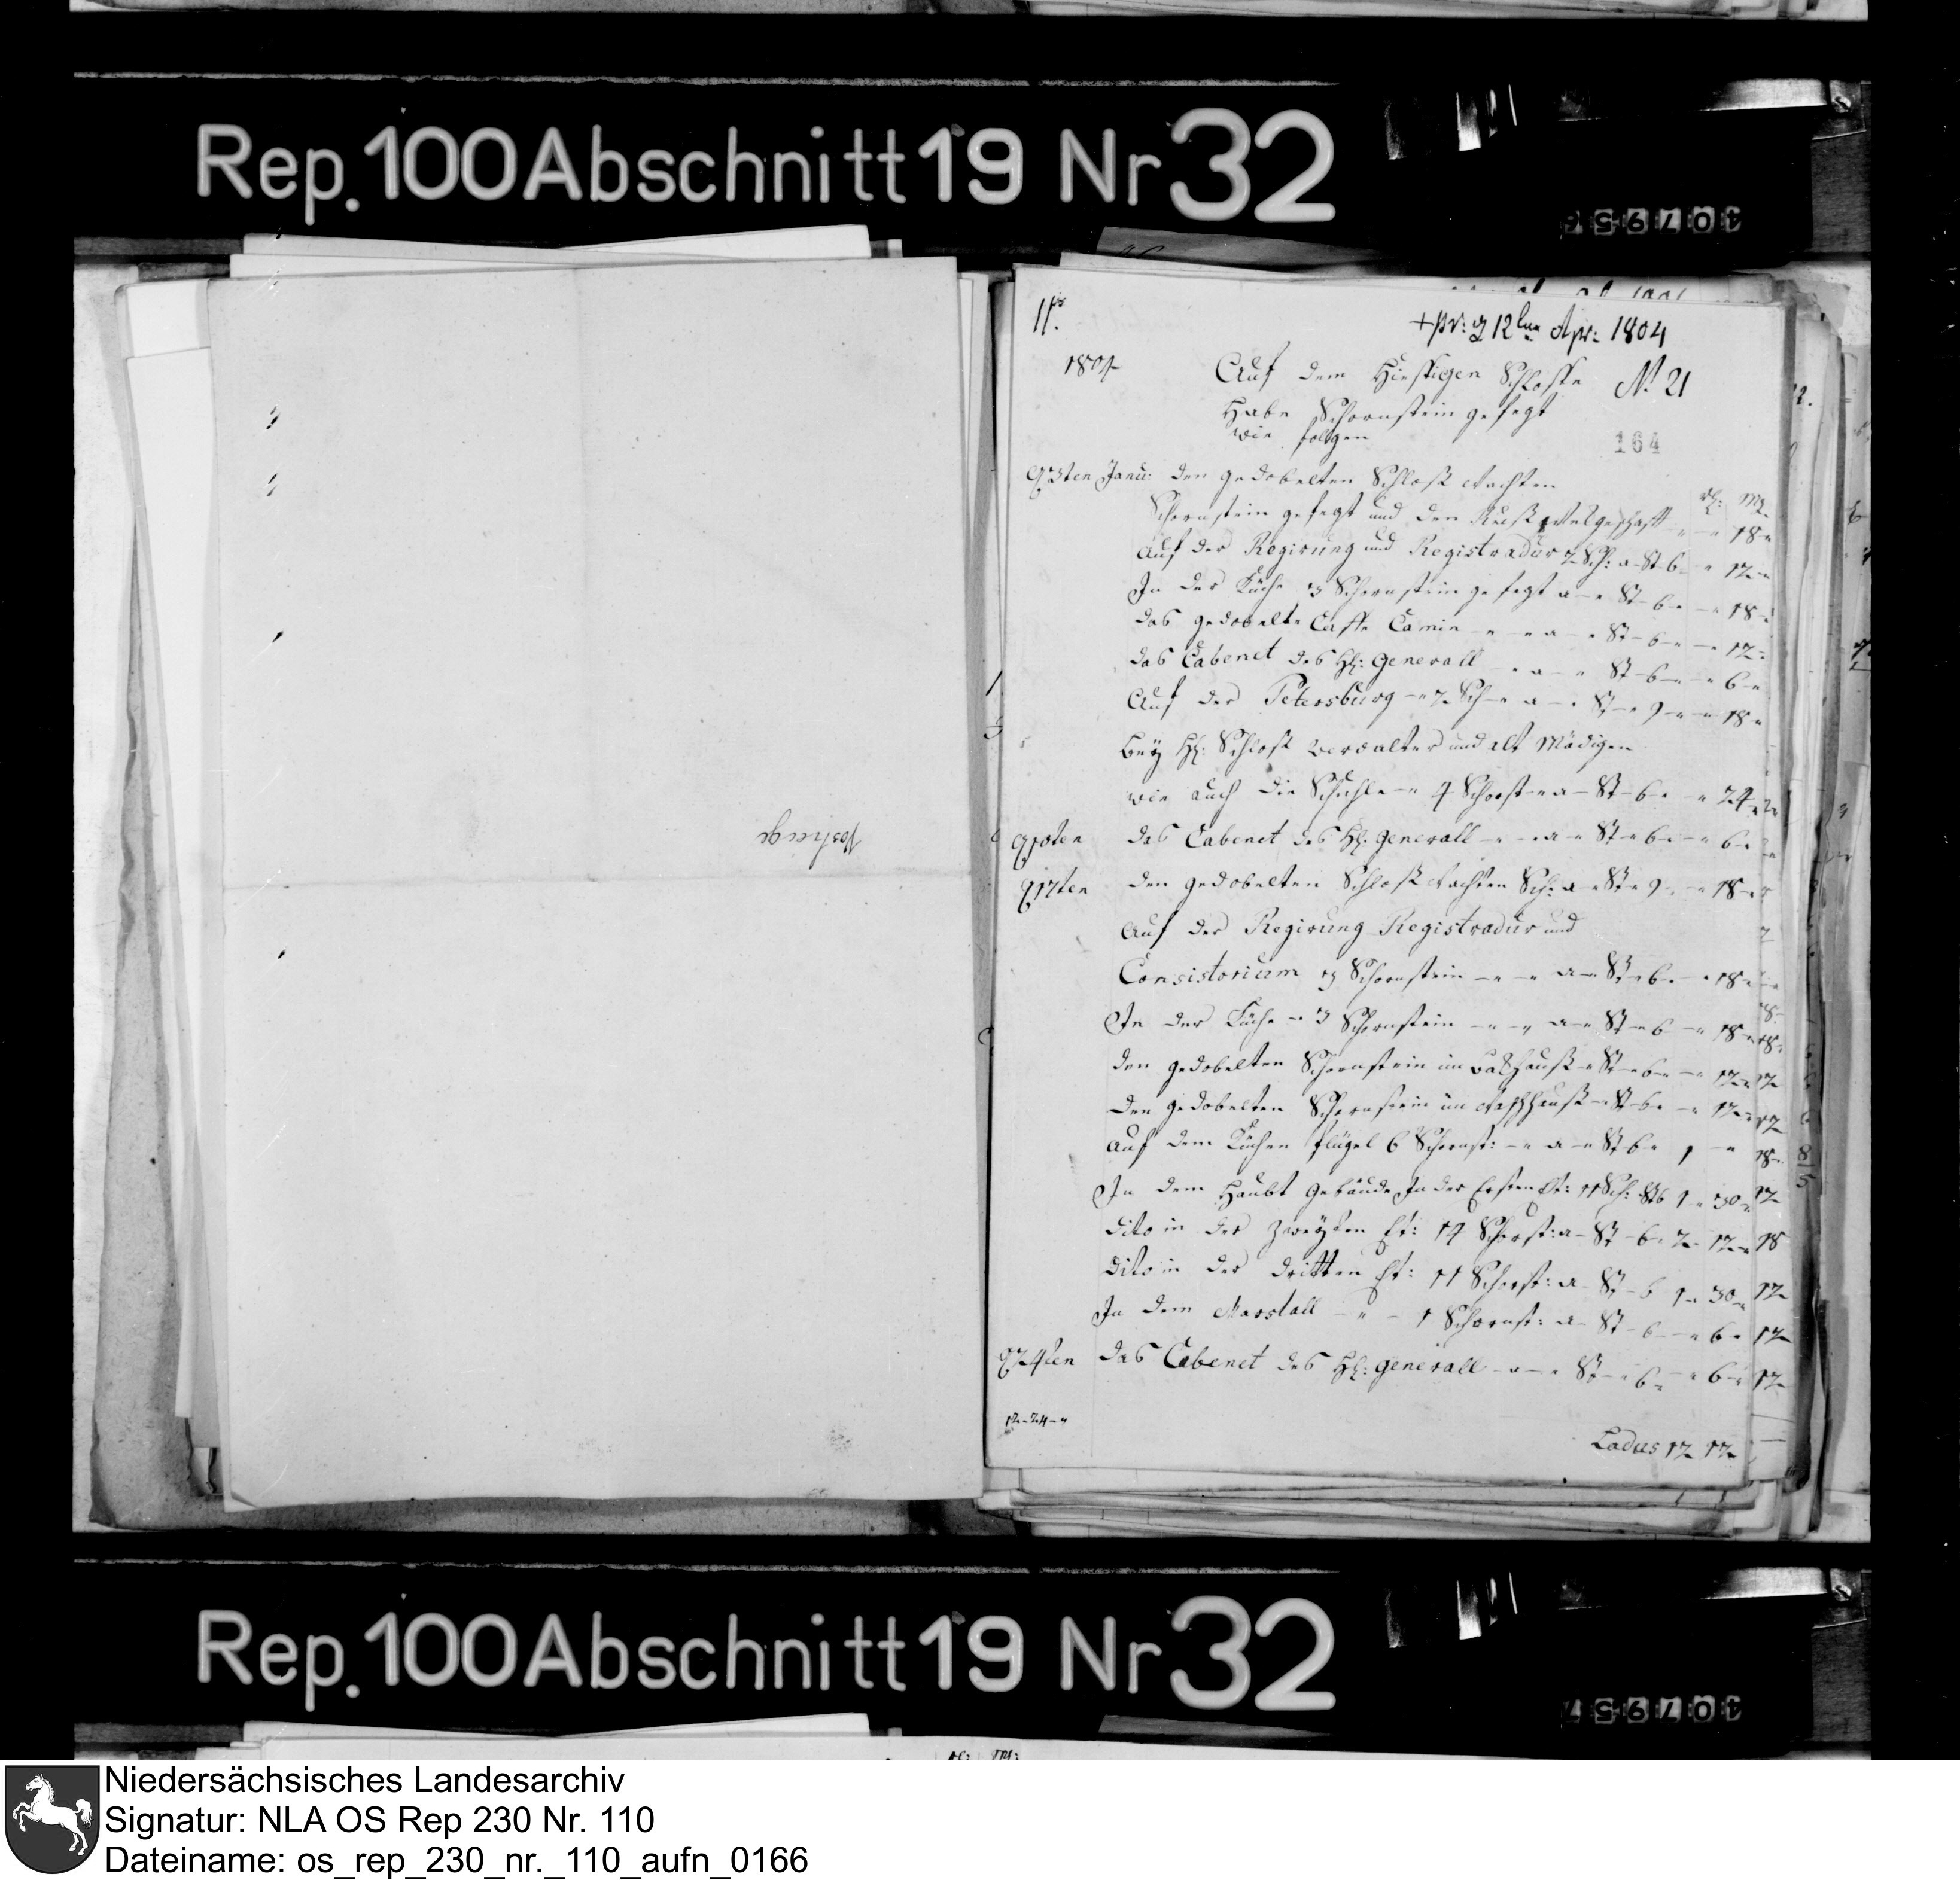 Rep. 100 Abschnitt 19 Nr 32
407956
+ pr: d 12ten Apr: 1804
1804
Auf dem Hiessigen Schlosse
N. 21
Habe Schornstein gefegt
wie folgen
164
d 3ten Janu: den gedobelten Schloß Wachten
rh: Mg
Schornstein gefegt und den Ruß geschaft - - 18 -
Auf der Regirung und Registradur 2 Sch: a St 6 - 12 -
In der Küche 3 Schornstein gefegt a - St - 6 - - 18 -
das gedobelte Caffe Camin - - a - St - 6 - - 12 -
das Cabenet des H: Generall - a - St - 6 - - 6 -
Auf der Petersburg - 2 Sch - a - St - 9 - - 18 -
bey H: Schloß verwalter und alt Mädigen
wie auch die Schuhle - 4 Schorst - a - St - 6 - - 24
d 10ten das Cabenet des H: Generall - - a - St - 6 - - 6 -
d 17ten den gedobelten Schloß Wachten Sch: a - St - 9 - - 18 -
Auf der Regirung Registradur und
Consistorium 3 Schornstein - - a - St - 6 - - 18 -
In der Küche - 3 Schornstein - - a - St - 6 - 18 -
den gedobelten Schornstein im backhauß - St - 6 - - 12 -
den gedobelten Schornstein im Waschhauß - St - 6 - - 12 -
Auf dem Küchen flügel 6 Schornst: - a - St 6 - 1 - -
In dem Haubt Gebäude In der Ersten Et: 11 Sch: St 6 1 - 30 -
dito in der Zweyten Et: 14 Schorst: a - St - 6 - 2 - 12 -
dito in der dritten Et: 11 Schorst: a - St - 6 1 - 30 -
In dem Marstall - - 1 Schornst: a - St - 6 - - 6 -
d 24ten das Cabenet des H: Generall - a - St - 6 - - 6 -
12 - 24 - -
Ladus 12 12
Rep. 100 Abschnitt 19 Nr 32
407957
Niedersächsisches Landesarchiv
Signatur: NLA OS Rep 230 Nr. 110
Dateiname: os_rep_230_nr._110_aufn_0166